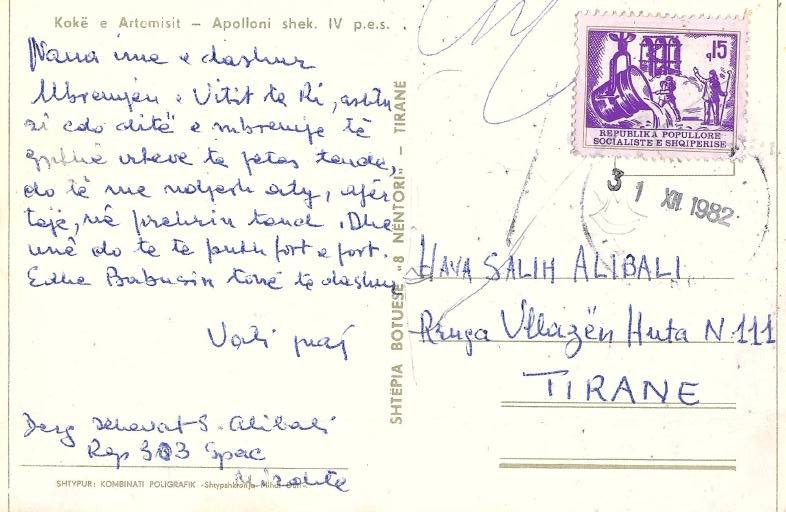 Kokë e Artemisit – Apolloni shek. IV p.e.s.
Nana ime e dashur
Mbremjen e Vitit te Ri, ashtu
si çdo ditë e mbremje të
gjithë viteve te jetes tende,
do të me ndjesh aty, afër
teje, në prehrin tend. Dhe
unë do te te puth fort e fort.
Edhe Babusin tonë të dashur
Vati juaj
Derg Xhevat S. Alibali
Rep 303 Spaç
Mirdite
SHTYPUR: KOMBINATI POLIGRAFIK -Shtypshkronja Mihal Duri-
SHTËPIA BOTUESE „8 NËNTORI” – TIRANE
q15
REPUBLIKA POPULLORE
SOCIALISTE E SHQIPERISE
31 XII 1982
HAVA SALIH ALIBALI
Rruga Vllazën Huta N. 111
TIRANE